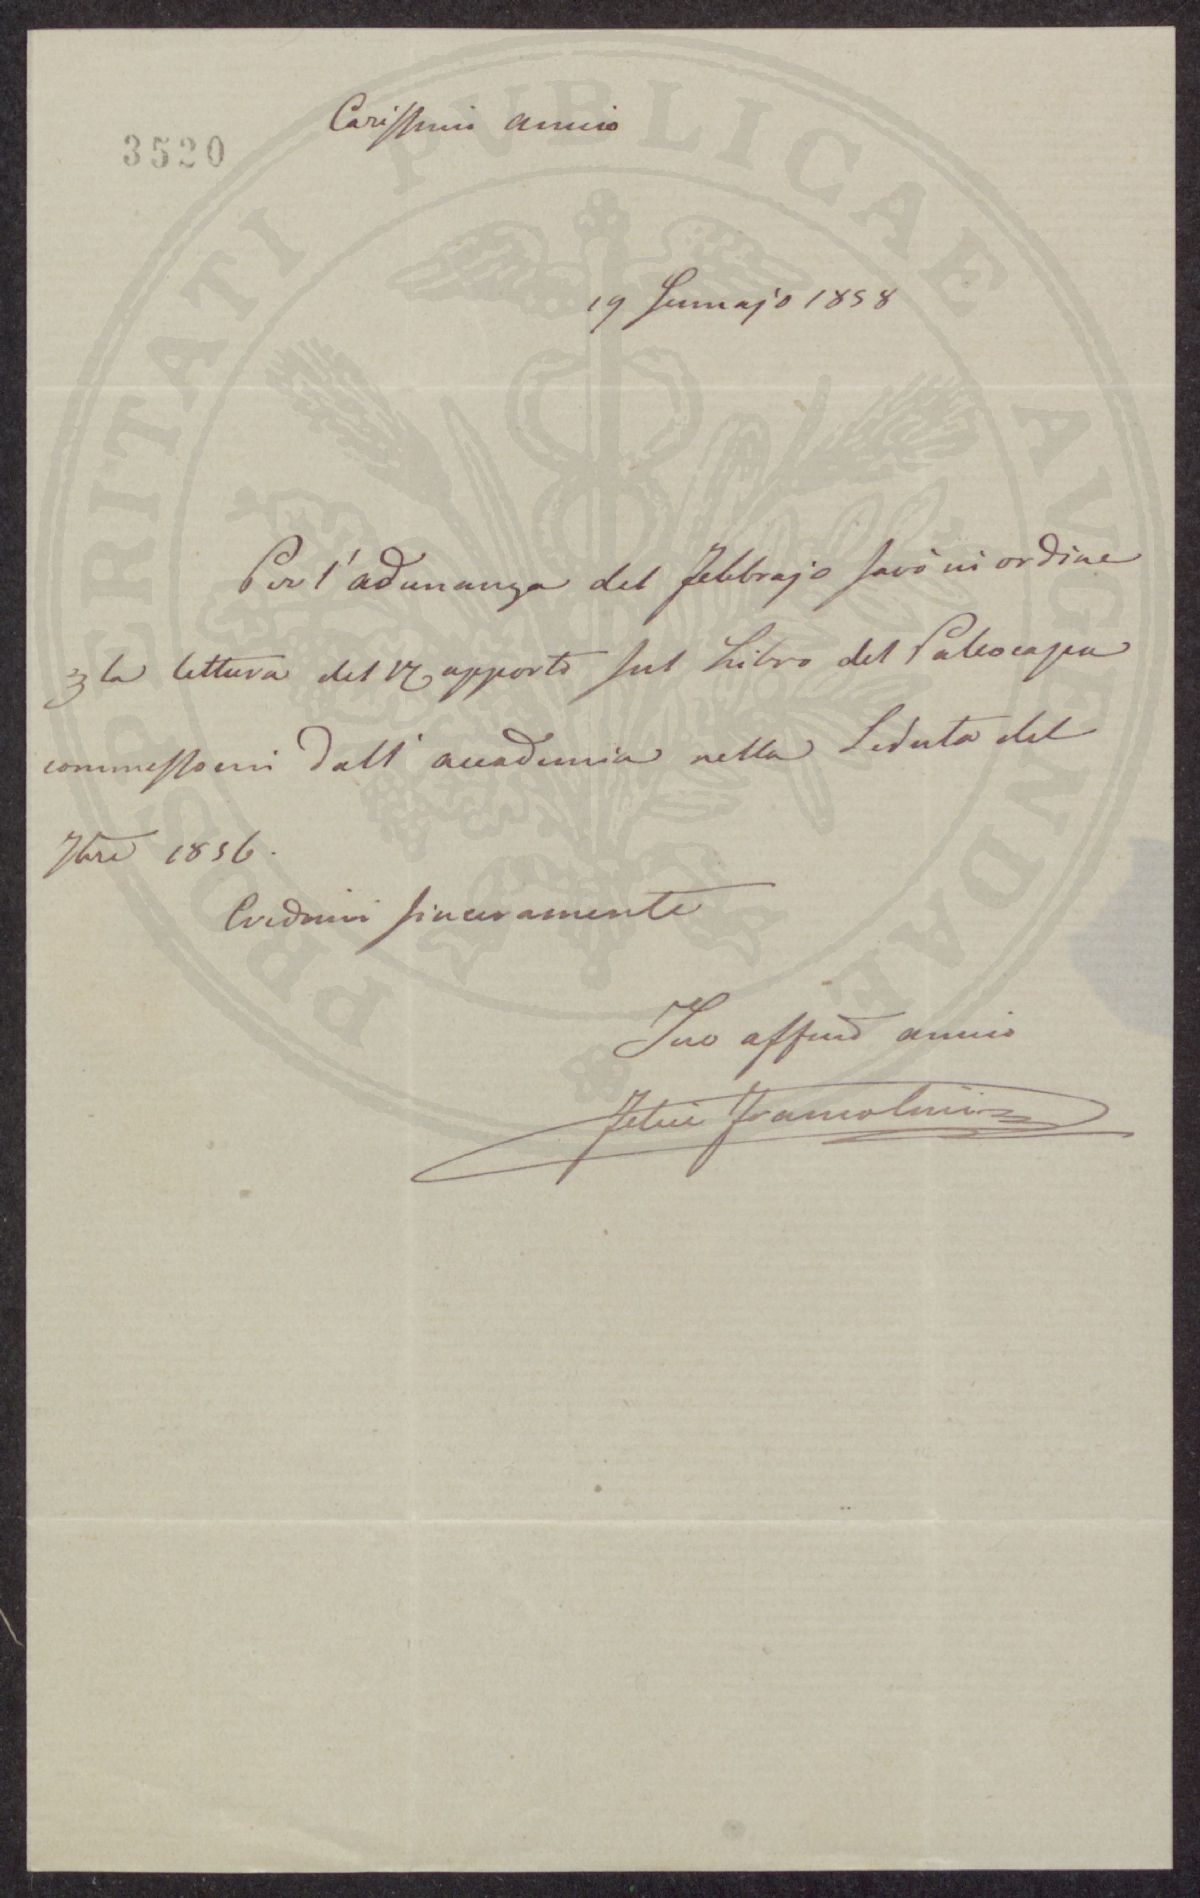 3520
Carissimo amico
19 Gennajo 1858
Per l'adunanza del Febbrajo sarò in ordine
per la lettura del Rapporto sul Libro del Paleocapa
commessomi dall'accademia nella Seduta del
7bre 1856.
Credimi sinceramente
Tuo affmo amico
Felice Francolini
PROSPERITATI PVBLICAE AVGENDAE